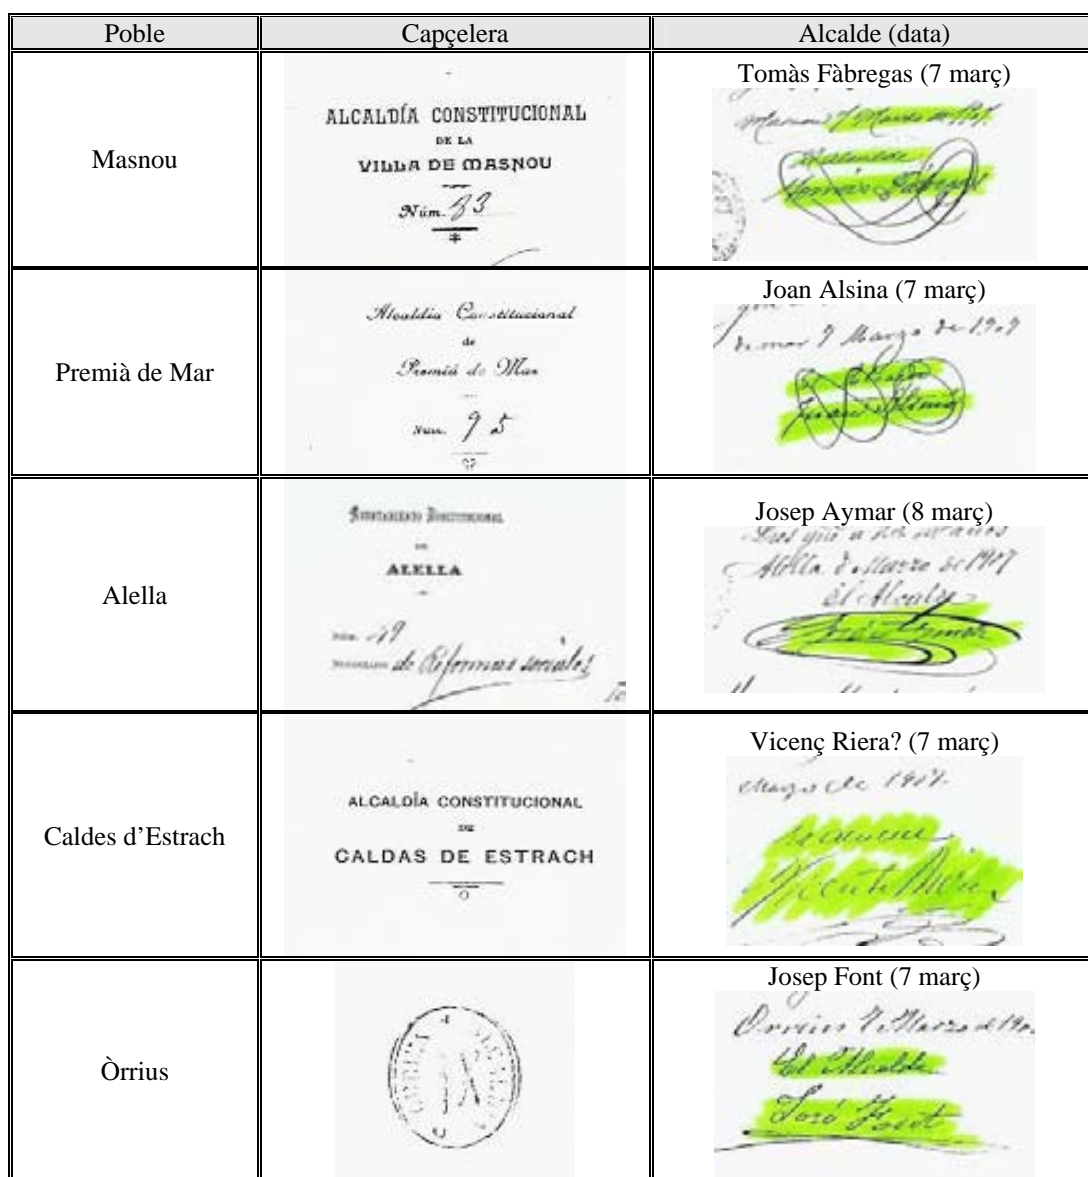 Poble Capçelera Alcalde (data)
Masnou
ALCALDÍA CONSTITUCIONAL
DE LA
VILLA DE MASNOU
Núm. 33
Tomàs Fàbregas (7 març)
Masnou 7 Marzo de 1907
El Alcalde
Tomás Fábregas
Premià de Mar
Alcaldía Constitucional
de
Premiá de Mar
Num. 95
Joan Alsina (7 març)
de mar 7 Marzo de 1907
El Alcalde
Juan Alsina
Alella
Ayuntamiento Constitucional
DE
ALELLA
Núm. 49
Negociado de Reformas sociales
Josep Aymar (8 març)
Dios que a
Alella 8 Marzo de 1907
El Alcalde
José Aymar
Caldes d’Estrach
ALCALDÍA CONSTITUCIONAL
DE
CALDAS DE ESTRACH
Vicenç Riera? (7 març)
Marzo de 1907.
Vicente Riera
Òrrius
Josep Font (7 març)
Orrius 7 Marzo de 190
El Alcalde
José Font